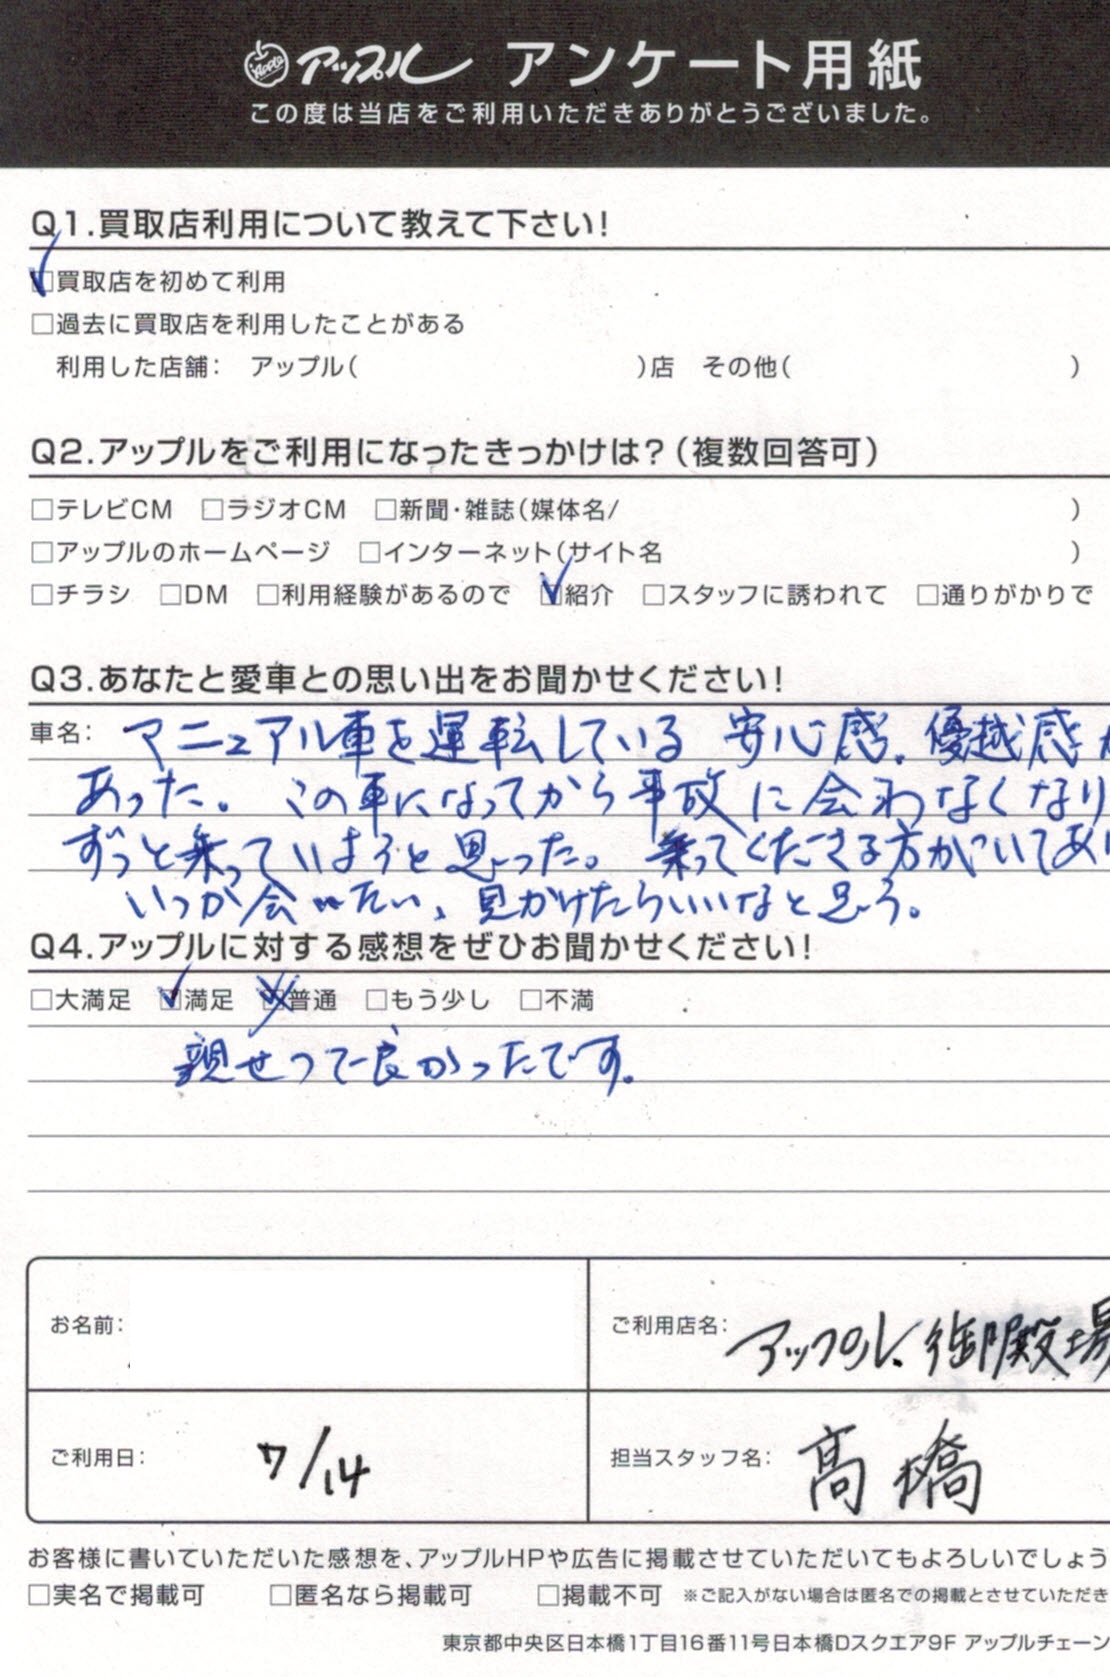 Apple アップル アンケート用紙
この度は当店をご利用いただきありがとうございました。
Q1.買取店利用について教えて下さい!
☑買取店を初めて利用
□過去に買取店を利用したことがある
利用した店舗: アップル( )店 その他( )
Q2.アップルをご利用になったきっかけは?(複数回答可)
□テレビCM □ラジオCM □新聞・雑誌(媒体名/ )
□アップルのホームページ □インターネット(サイト名 )
□チラシ □DM □利用経験があるので ☑紹介 □スタッフに誘われて □通りがかりで
Q3.あなたと愛車との思い出をお聞かせください!
車名: マニュアル車を運転している 安心感、優越感が
あった。この車になってから事故に会わなくなり
ずっと乗っていようと思った。乗ってくださる方がいてあり
いつか会いたい、見かけたらいいなと思う。
Q4.アップルに対する感想をぜひお聞かせください!
□大満足 ☑満足 □普通 □もう少し □不満
親せつで良かったです。
お名前:
ご利用店名: アップル 御殿場
ご利用日: 7/14
担当スタッフ名: 高橋
お客様に書いていただいた感想を、アップルHPや広告に掲載させていただいてもよろしいでしょう
□実名で掲載可 □匿名なら掲載可 □掲載不可 ※ご記入がない場合は匿名での掲載とさせていただき
東京都中央区日本橋1丁目16番11号日本橋Dスクエア9F アップルチェーン